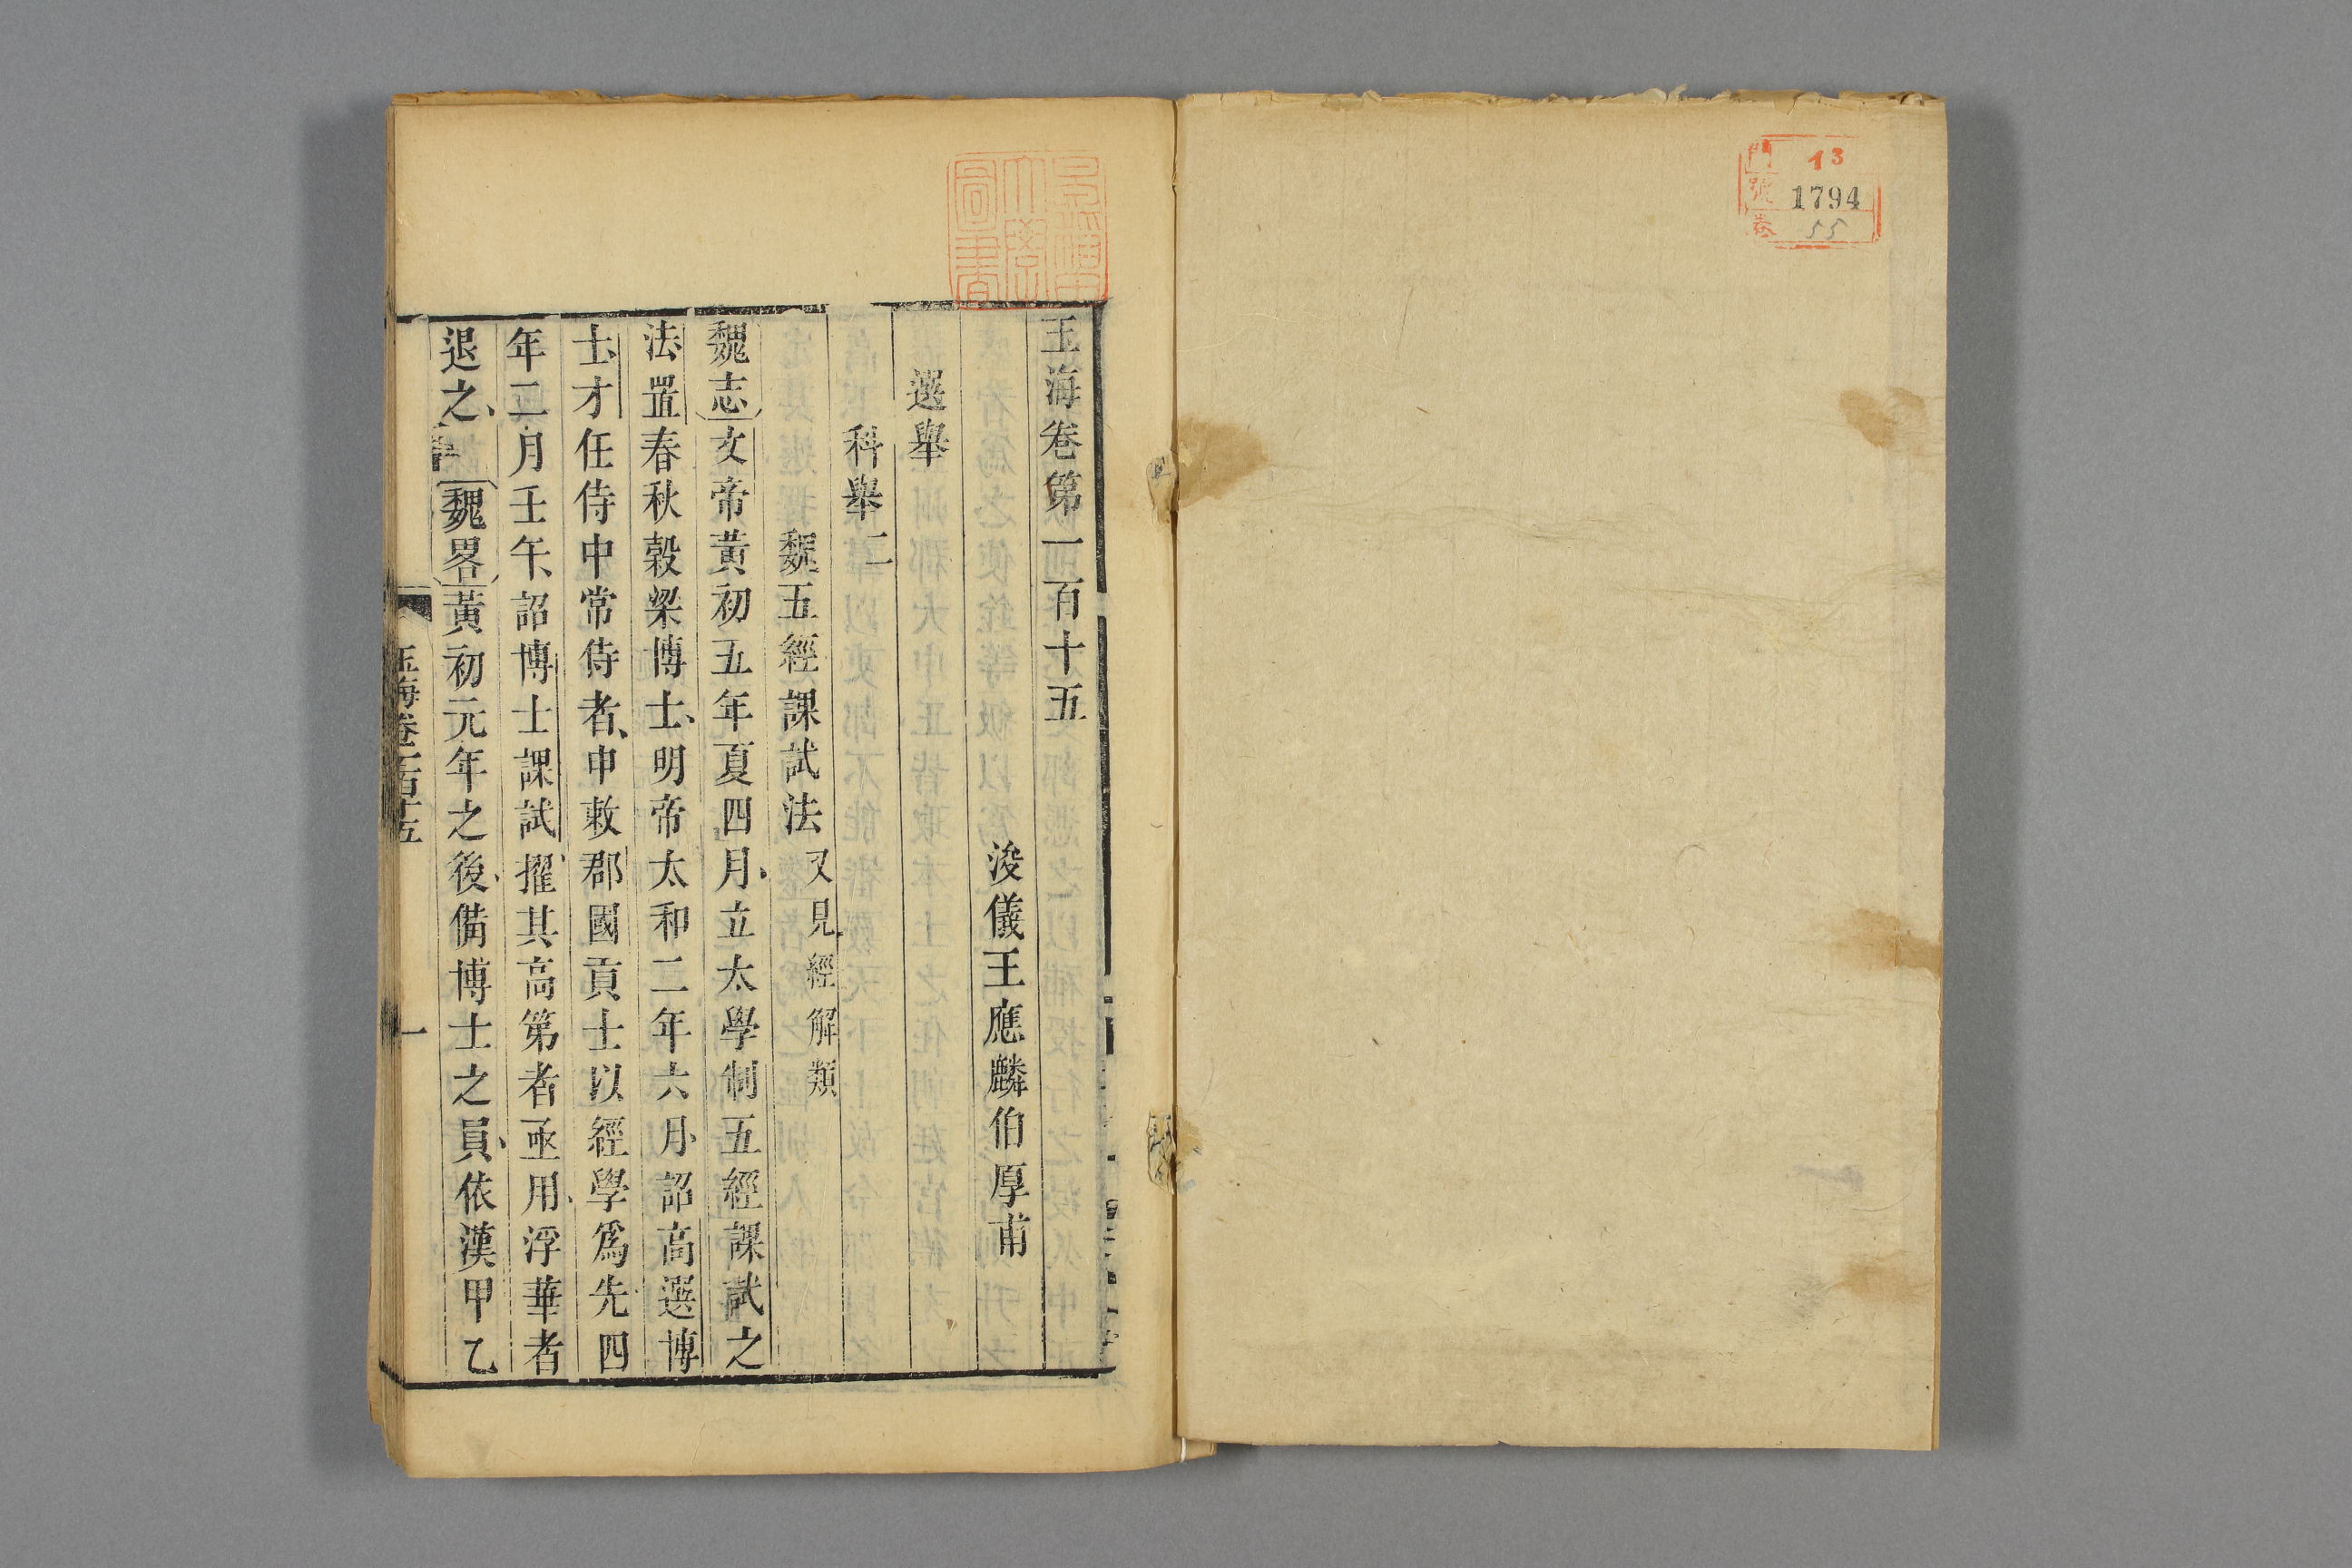 門 13
號 1794
卷 55
玉海卷第一百十五
浚儀王應麟伯厚甫
選舉
科舉二
魏五經課試法 又見經解類
魏志文帝黃初五年夏四月立太學制五經課試之
法置春秋穀梁博士明帝太和二年六月詔高選博
士才任侍中常侍者申敕郡國貢士以經學爲先四
年二月壬午詔博士課試擢其高第者亟用浮華者
退之 魏畧黃初元年之後備博士之員依漢甲乙
玉海卷一百十五
一